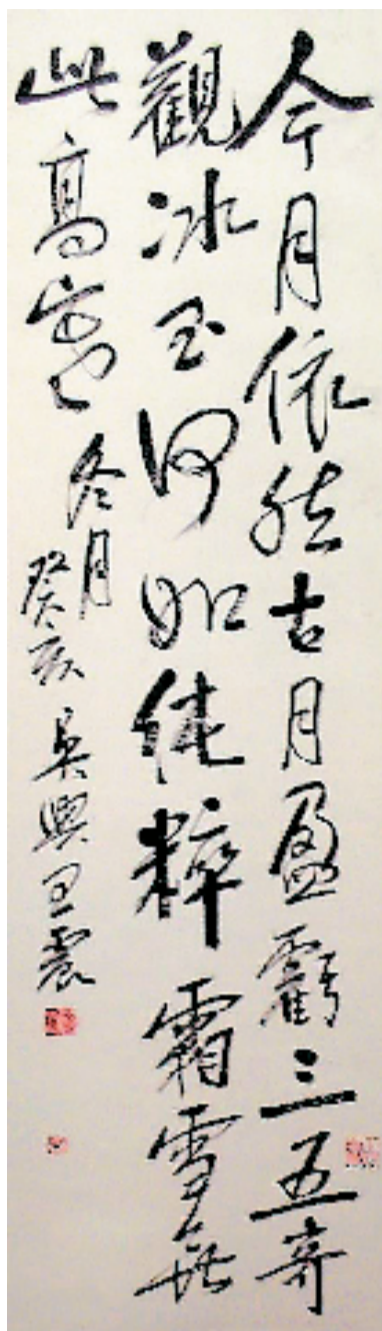 今月依然古月盈虧三五奇
觀冰玉何如純粹霜雪無
此高寒
冬月
癸亥吳興王震